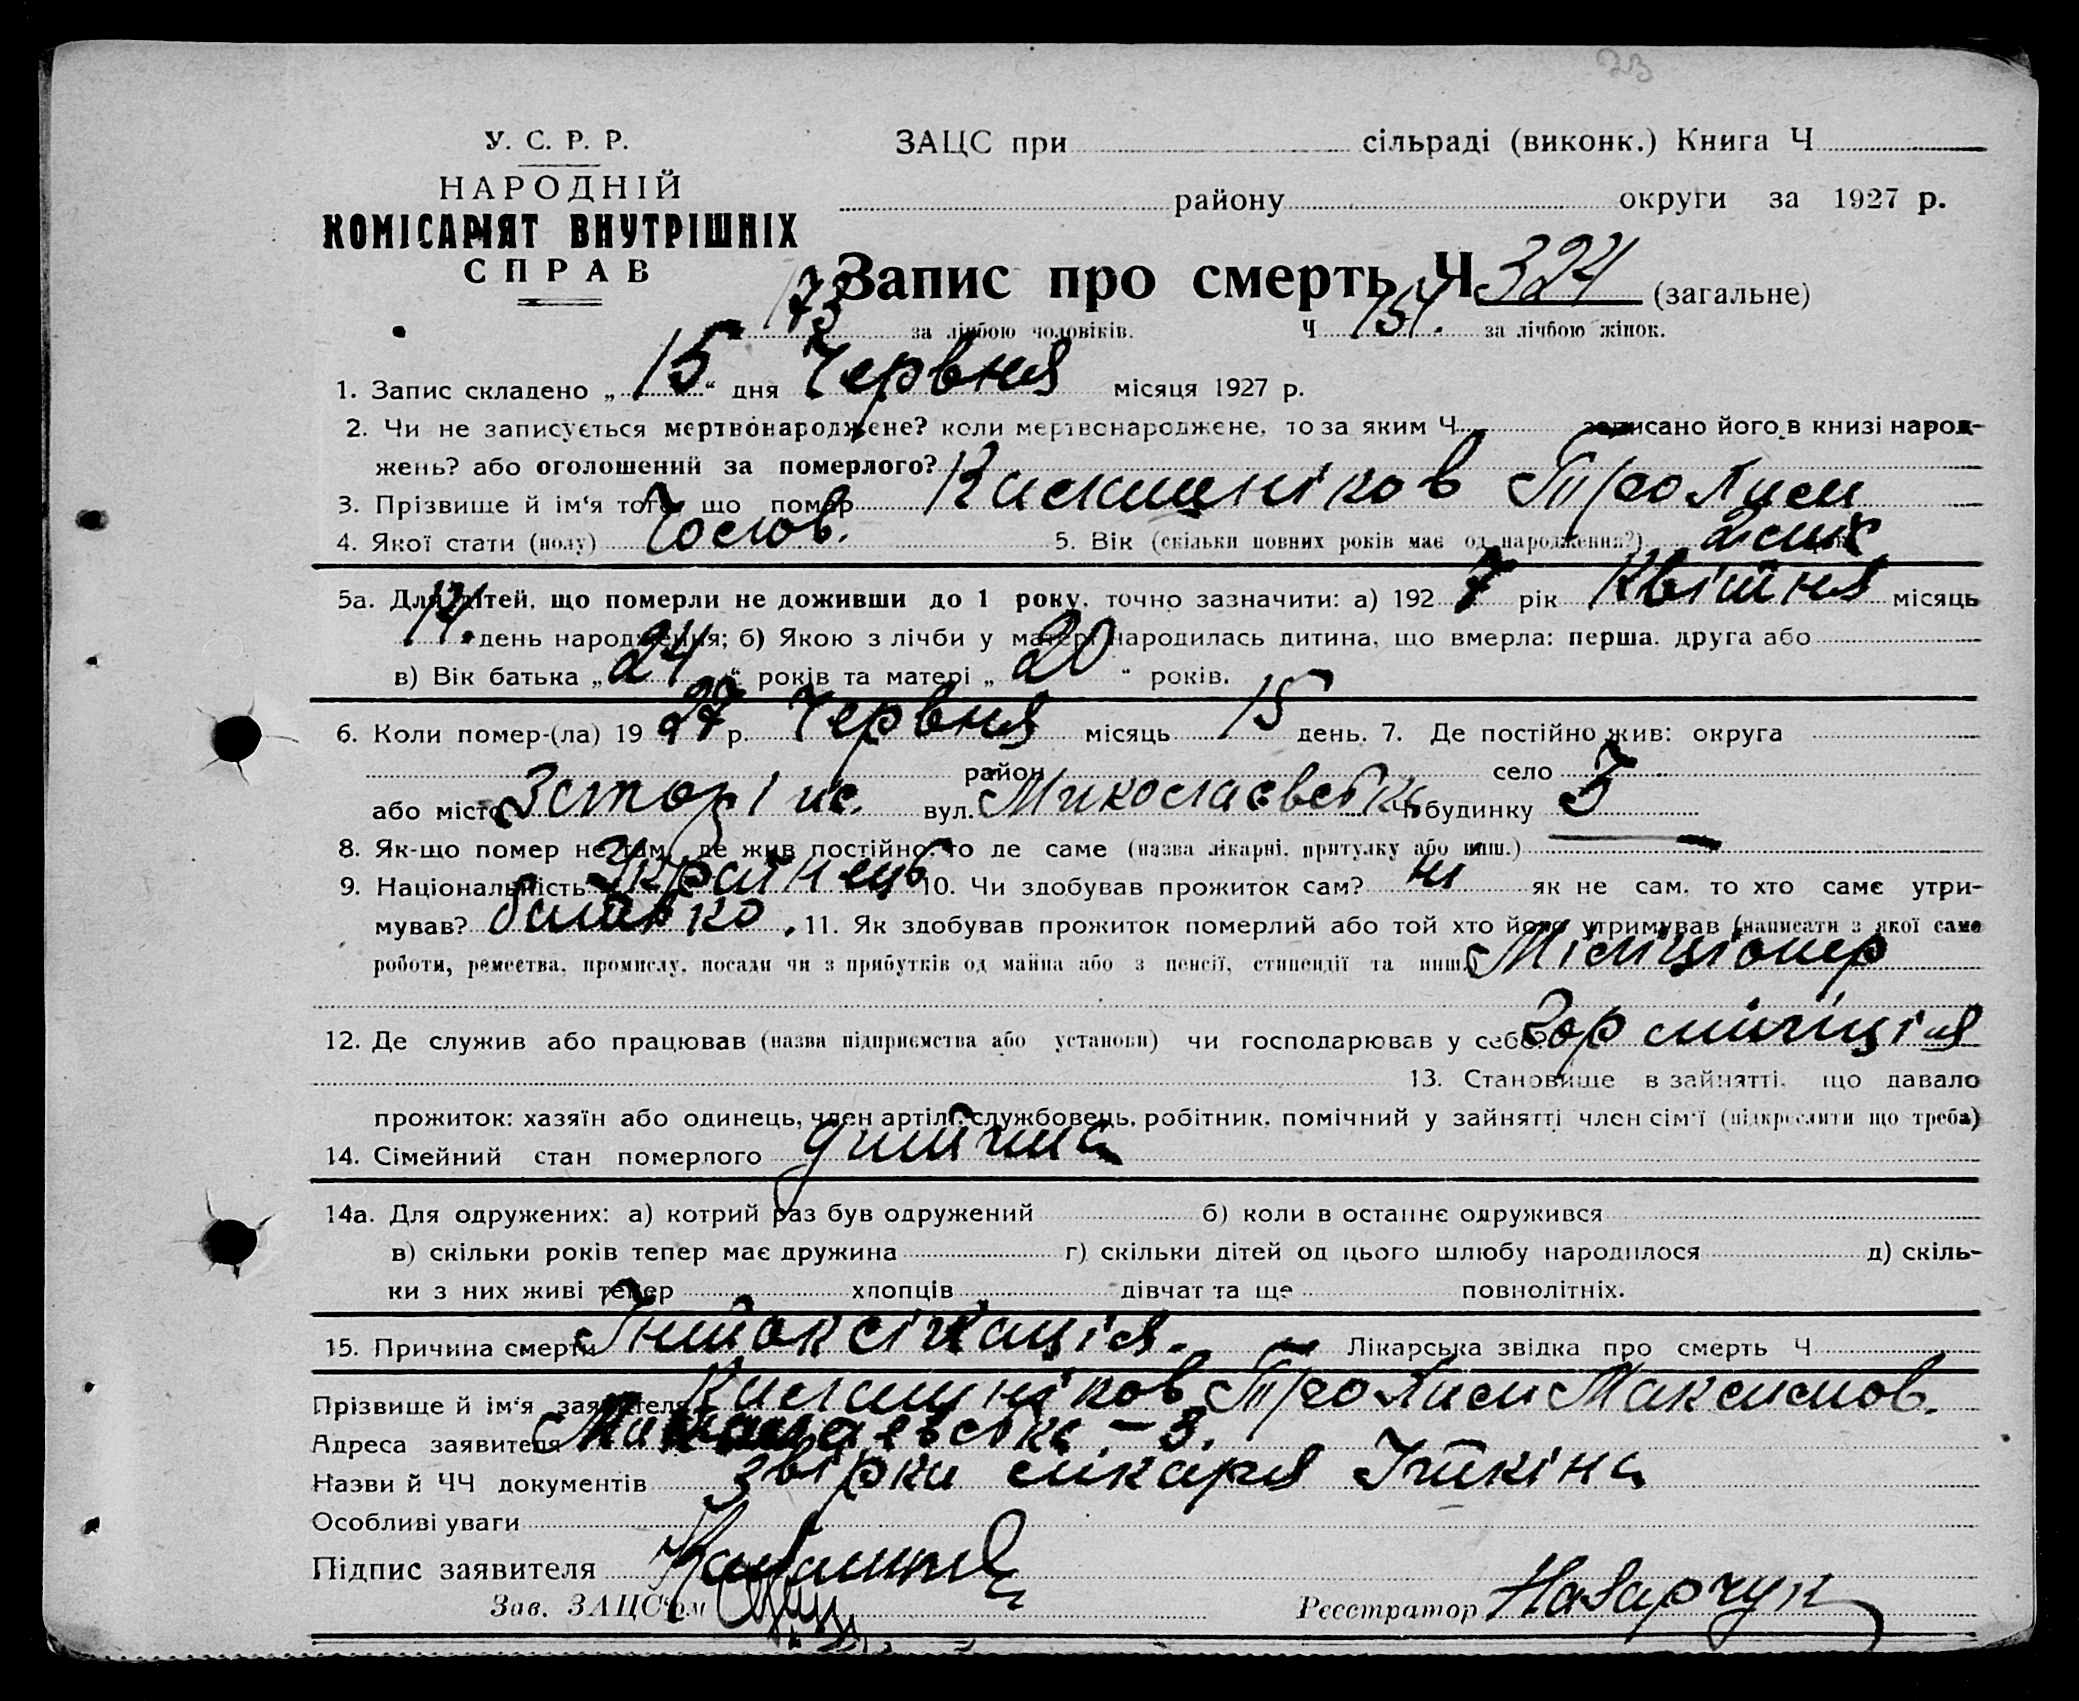 23
У. С. Р. Р.
НАРОДНІЙ
КОМІСАРІЯТ ВНУТРІШНІХ
СПРАВ
ЗАЦС при сільраді (виконк.) Книга Ч
району округи за 1927 р.
Запис про смерть Ч 324 (загальне)
173 за лічбою чоловіків. Ч 151. за лічбою жінок.
1. Запис складено „15“ дня Червня місяця 1927 р.
2. Чи не записується мертвонароджене? коли мертвонароджене, то за яким Ч записано його в книзі народ-
жень? або оголошений за померлого?
3. Прізвище й ім‘я того, що помер
4. Якої стати (полу) Чолов. 5. Вік (скільки повних років має од народження?) 2 міс.
5а. Для дітей, що померли не доживши до 1 року, точно зазначити: а) 1927 рік Квітня місяць
14. день народження; б) Якою з лічби у матері народилась дитина, що вмерла: перша, друга або
в) Вік батька „24“ років та матері „20“ років.
6. Коли помер-(ла) 1927 р. Червня місяць 15 день. 7. Де постійно жив: округа
район село
або місто вул. Миколаєвська Ч будинку 3
8. Як-що помер не там, де жив постійно, то де саме (назва лікарні, притулку або инш.)
9. Національність Українець 10. Чи здобував прожиток сам? ні як не сам, то хто саме утри-
мував? батько. 11. Як здобував прожиток померлий або той хто його утримував (написати з якої саме
роботи, ремества, промислу, посади чи з прибутків од майна або з пенсії, стипендії та инш.) Міліціонер
12. Де служив або працював (назва підприємства або установи) чи господарював у себе? міліція
13. Становище в зайнятті, що давало
прожиток: хазяїн або одинець, член артілі, службовець, робітник, помічний у зайнятті член сім‘ї (підкреслити що треба)
14. Сімейний стан померлого дитина
14а. Для одружених: а) котрий раз був одружений б) коли в останнє одружився
в) скільки років тепер має дружина г) скільки дітей од цього шлюбу народилося д) скіль-
ки з них живі тепер хлопців дівчат та ще повнолітніх.
15. Причина смерти Інтоксікація. Лікарська звідка про смерть Ч
Прізвище й ім‘я заявителя Максимов.
Адреса заявителя Миколаєвська – 3.
Назви й ЧЧ документів лікаря Іткіна
Особливі уваги
Підпис заявителя
Зав. ЗАЦС‘ом Реєстратор Назарчук